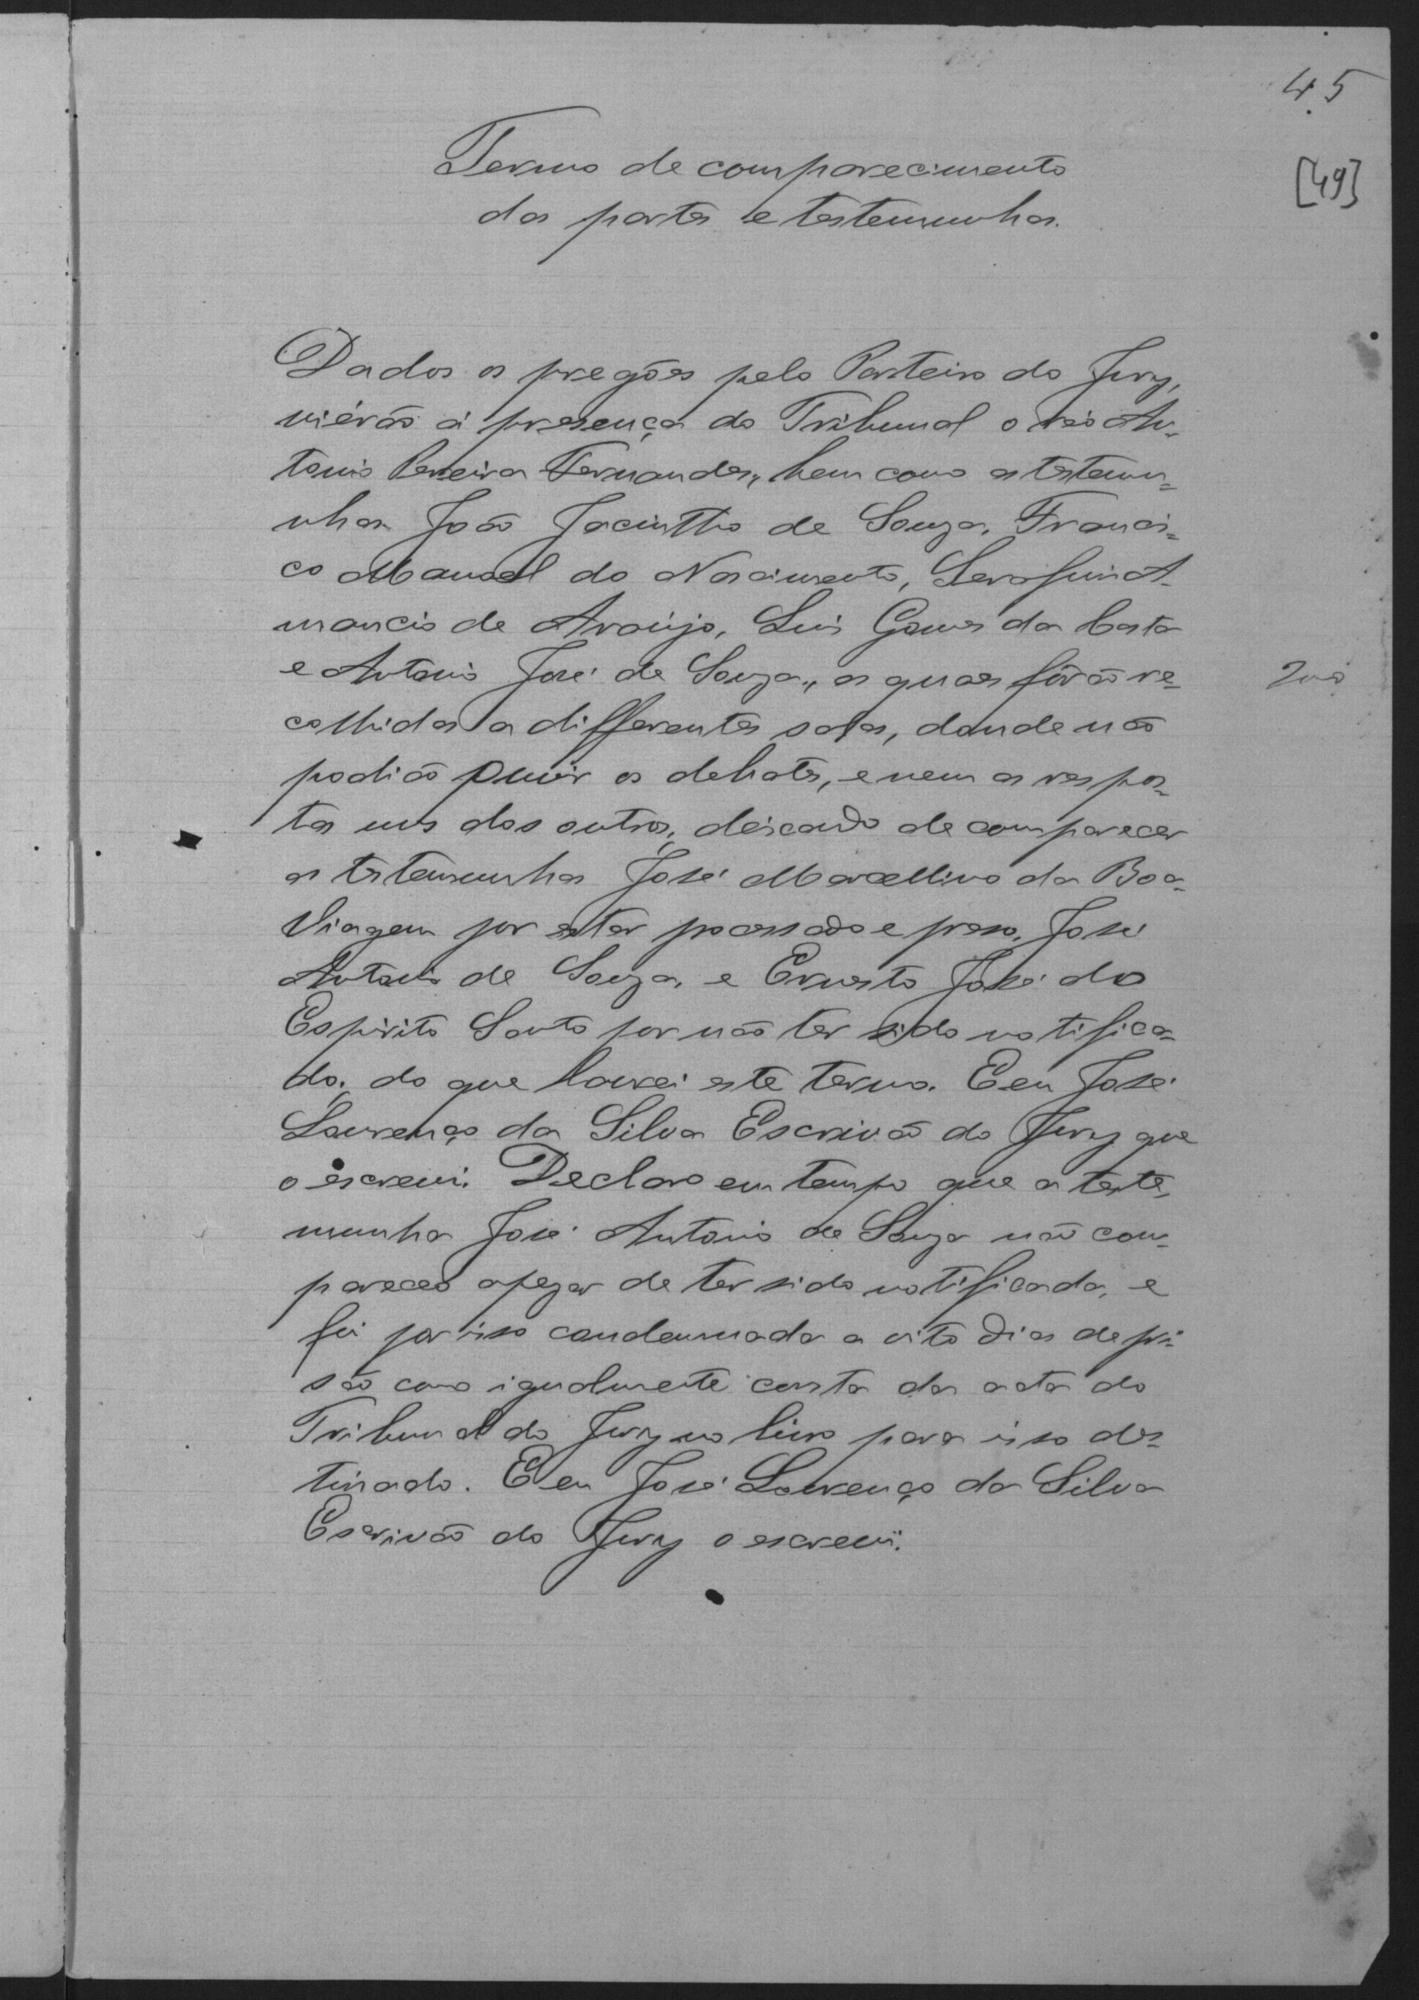 45
[49]
Termo de comparecimento
das partes e testemunhas.
Dados os pregões pelo Porteiro do Jury,
viérão á presença do Tribunal o réo An-
tonio Pereira Fernandes, bem como as testemu-
nhas João Jacintho de Souza, Francis-
co Manoel do Nascimento, Serafim A-
mancio de Araújo, Luis Gomes da Costa
e Antonio José de Souza, as quaes fôrão re-
colhidas a differentes salas, donde não
podião ouvir os debates, e nem as respos-
tas uns dos outros, deixando de comparecer
as testemunhas José Marcellino da Boa-
Viagem por estar processado e preso, José
Antonio de Souza, e Ernesto José do
Espirito Santo por não ter sido notifica-
do, do que lavrei este termo. E eu José
Lourenço da Silva Escrivão do Jury que
o escrevi. Declaro em tempo que a teste-
munha José Antonio de Souza não com-
pareceo apezar de ter sido notificada, e
foi por isso condemnada a oito dias de pri-
são como igualmente consta da acta do
Tribunal do Jury no livro para isso des-
tinado. E eu José Lourenço da Silva
Escrivão do Jury o escrevi.